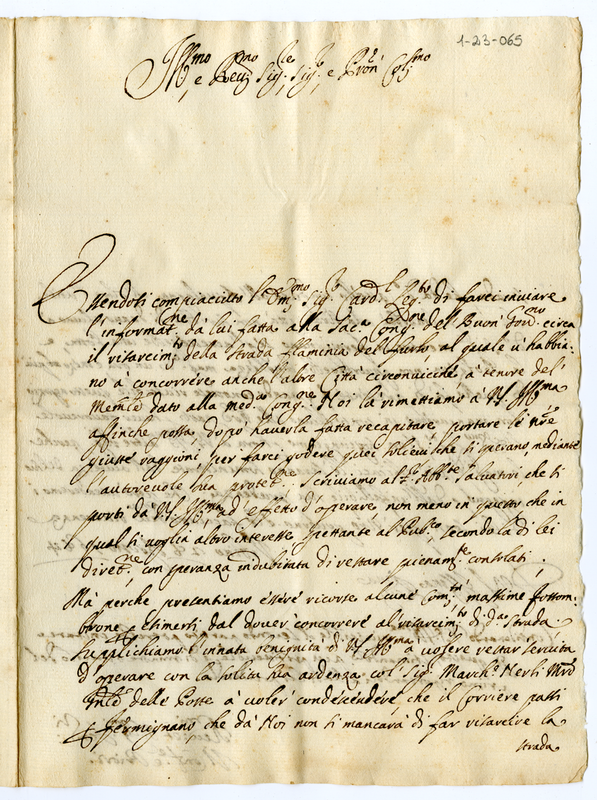 1-23-065
Ill.mo e Rev.mo Sig.re Sig.r, e Pron. Col.mo
Essendosi compiaciuto l'Em.mo Sig.r Card.l Leg.to di farci inviare
l'informat.ne da lui fatta alla Sac.a Cong.ne del Buon Gov.no circa
il risarcim.to della strada flaminia del furlo, al quale v'habbia-
no à concorrere anche l'altre Città circonvicine, à tenore del
Mem.le dato alla med.a Cong.ne. Noi la rimettiamo à V.S. Ill.ma
affinche possa dopo haverla fatta recapitare, portare le n.re
giuste raggioni per farci godere quei solievi che si sperano, mediante
l'autorevole sua protet.ne. Scriviamo al S.r Abb.te Salvatori che si
porti dà V.S. Ill.ma ad effetto d'operare, non meno in questo che in
qual si voglia altro interesse spettante al Pub.co, secondo la di lei
diret.ne, con speranza indubitata di restare pienam.te consolati.
Mà perche presentiamo essere ricorse alcune Com.tà, massime fossom-
brone, p. esimersi dal dover concorrere al risarcim.to di d.a strada.
Supplichiamo l'innata benignità di V.S. Ill.ma à volere restar servita
d'operare con la solita sua ardenza col Sig.r March.e Nerli
delle Poste à voler condescendere, che il Corriere passi
p. fermignano, che dà Noi non si mancarà di far risarcire la
strada